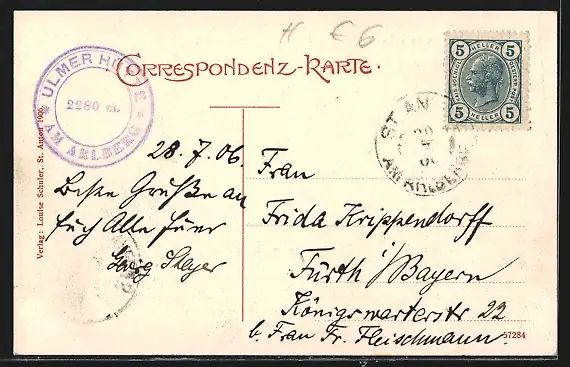 H € 6
CORRESPONDENZ-KARTE.
ULMER HÜTTE
2280 m.
* AM ARLBERG *
5 HELLER 5
5 HELLER 5
ST. ANTON
AM ARLBERG
Verlag: Louise Schuler, St. Anton 1906.
28. 7. 06.
Beste Grüße an
Euch Alle
Frau
Frida Krippendorff
Fürth i/Bayern
Königswarterstr 22
b. Frau Fr. Fleischmann.
57284